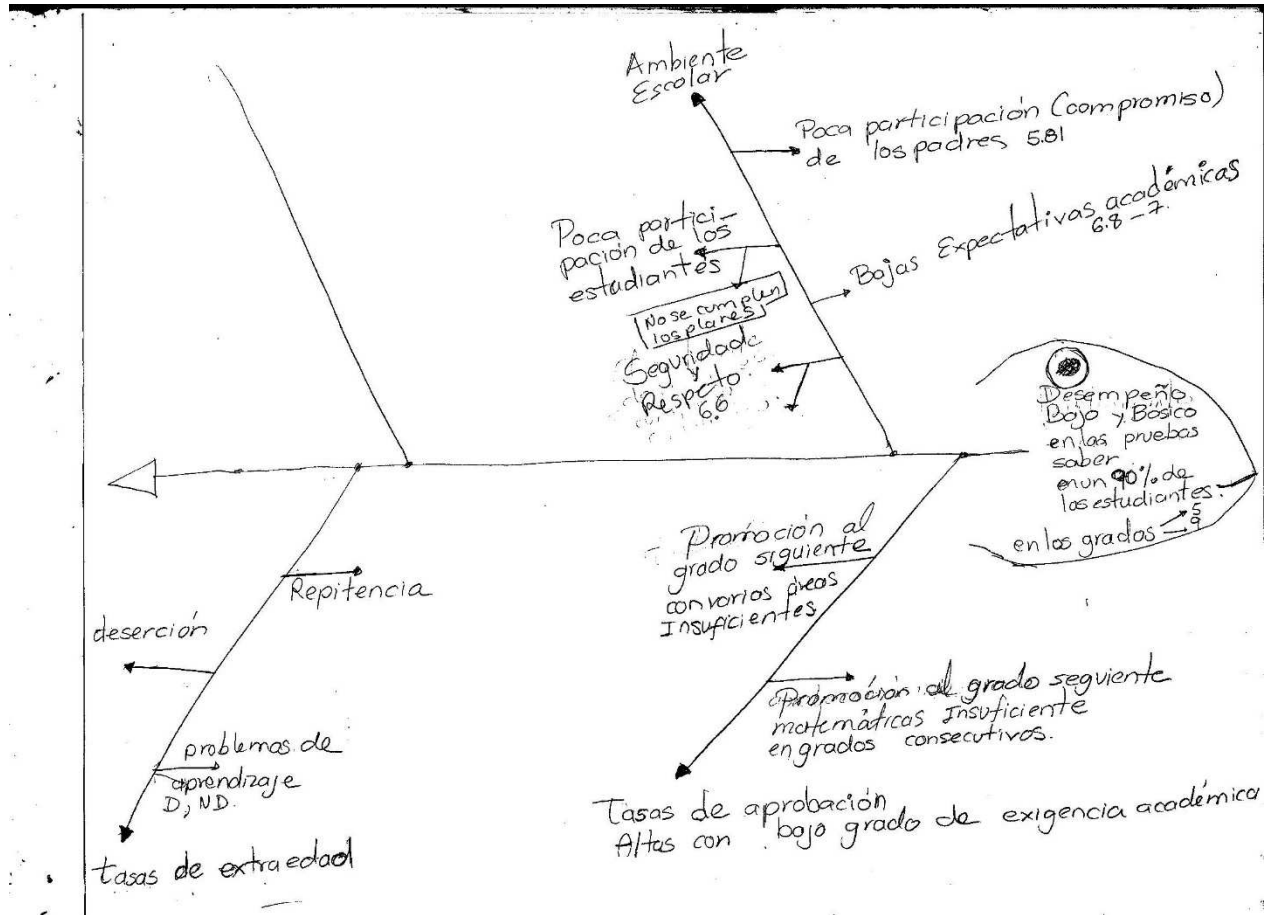 Ambiente
Escolar
Poca participación (compromiso)
de los padres 5.81
Poca partici-
pación de los
estudiantes
No se cumplen
los planes
Bajas Expectativas académicas
6.8 - 7.
Seguridad
y
Respeto
6.6
Desempeño
Bajo y Básico
en las pruebas
saber
en un 90% de
los estudiantes.
en los grados 5
9
Promoción al
grado siguiente
con varias áreas
Insuficientes
Promoción al grado seguiente
matemáticas Insuficiente
en grados consecutivos.
Tasas de aprobación
Altas con bajo grado de exigencia académica
Repitencia
deserción
problemas de
aprendizaje
D, ND.
tasas de extraedad